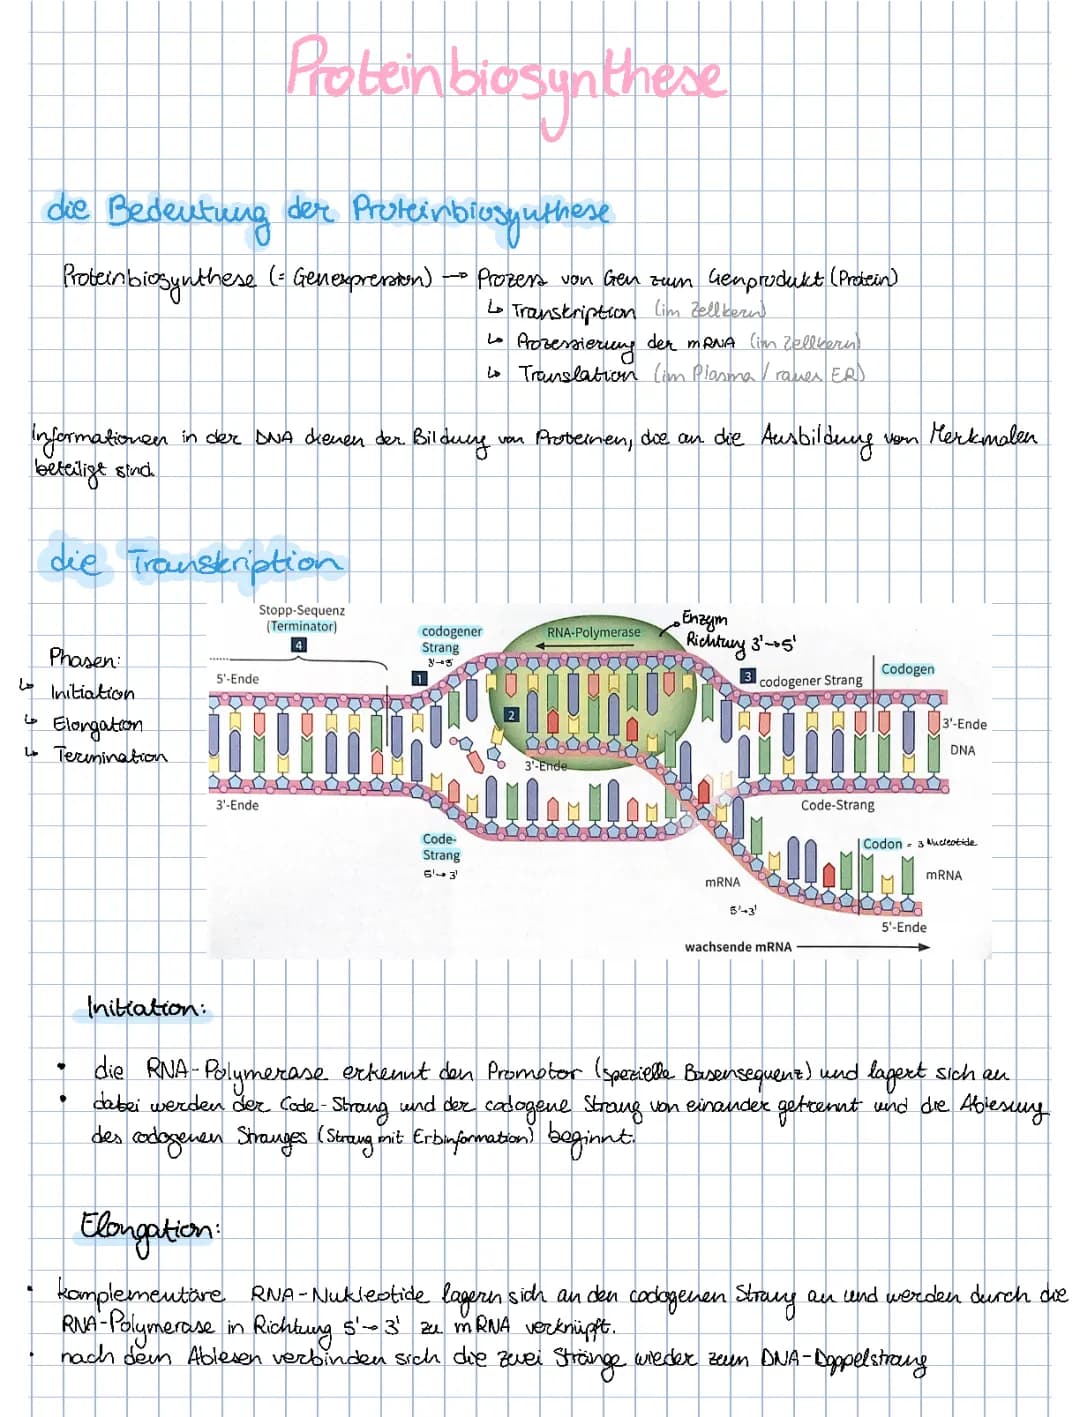 Proteinbiosynthese
die Bedeutung der Proteinbiosynthese
Proteinbiosynthese (= Genexpression) → Prozess von Gen zum Genprodukt (Protein)
↳ Transkription (im Zellkern)
↳ Prozessierung der mRNA (im Zellkern)
↳ Translation (im Plasma / raues ER)
Informationen in der DNA dienen der Bildung von Proteinen, die an die Ausbildung von Merkmalen
beteiligt sind.
die Transkription
Phasen:
↳ Initiation
↳ Elongation
↳ Termination
Stopp-Sequenz
(Terminator)
4
5'-Ende
3'-Ende
codogener
Strang
3'→5'
1
RNA-Polymerase
Enzym
Richtung 3'→5'
2
3'-Ende
3 codogener Strang
Codogen
3'-Ende
DNA
Code-Strang
Code-
Strang
5'→3'
Codon = 3 Nucleotide
mRNA
mRNA
5'→3'
5'-Ende
wachsende mRNA
Initiation:
• die RNA-Polymerase erkennt den Promotor (spezielle Basensequenz) und lagert sich an
• dabei werden der Code-Strang und der codogene Strang von einander getrennt und die Ablesung
des codogenen Stranges (Strang mit Erbinformation) beginnt.
Elongation:
• komplementäre RNA-Nukleotide lagern sich an den codogenen Strang an und werden durch die
RNA-Polymerase in Richtung 5'→3' zu mRNA verknüpft.
• nach dem Ablesen verbinden sich die zwei Stränge wieder zum DNA-Doppelstrang